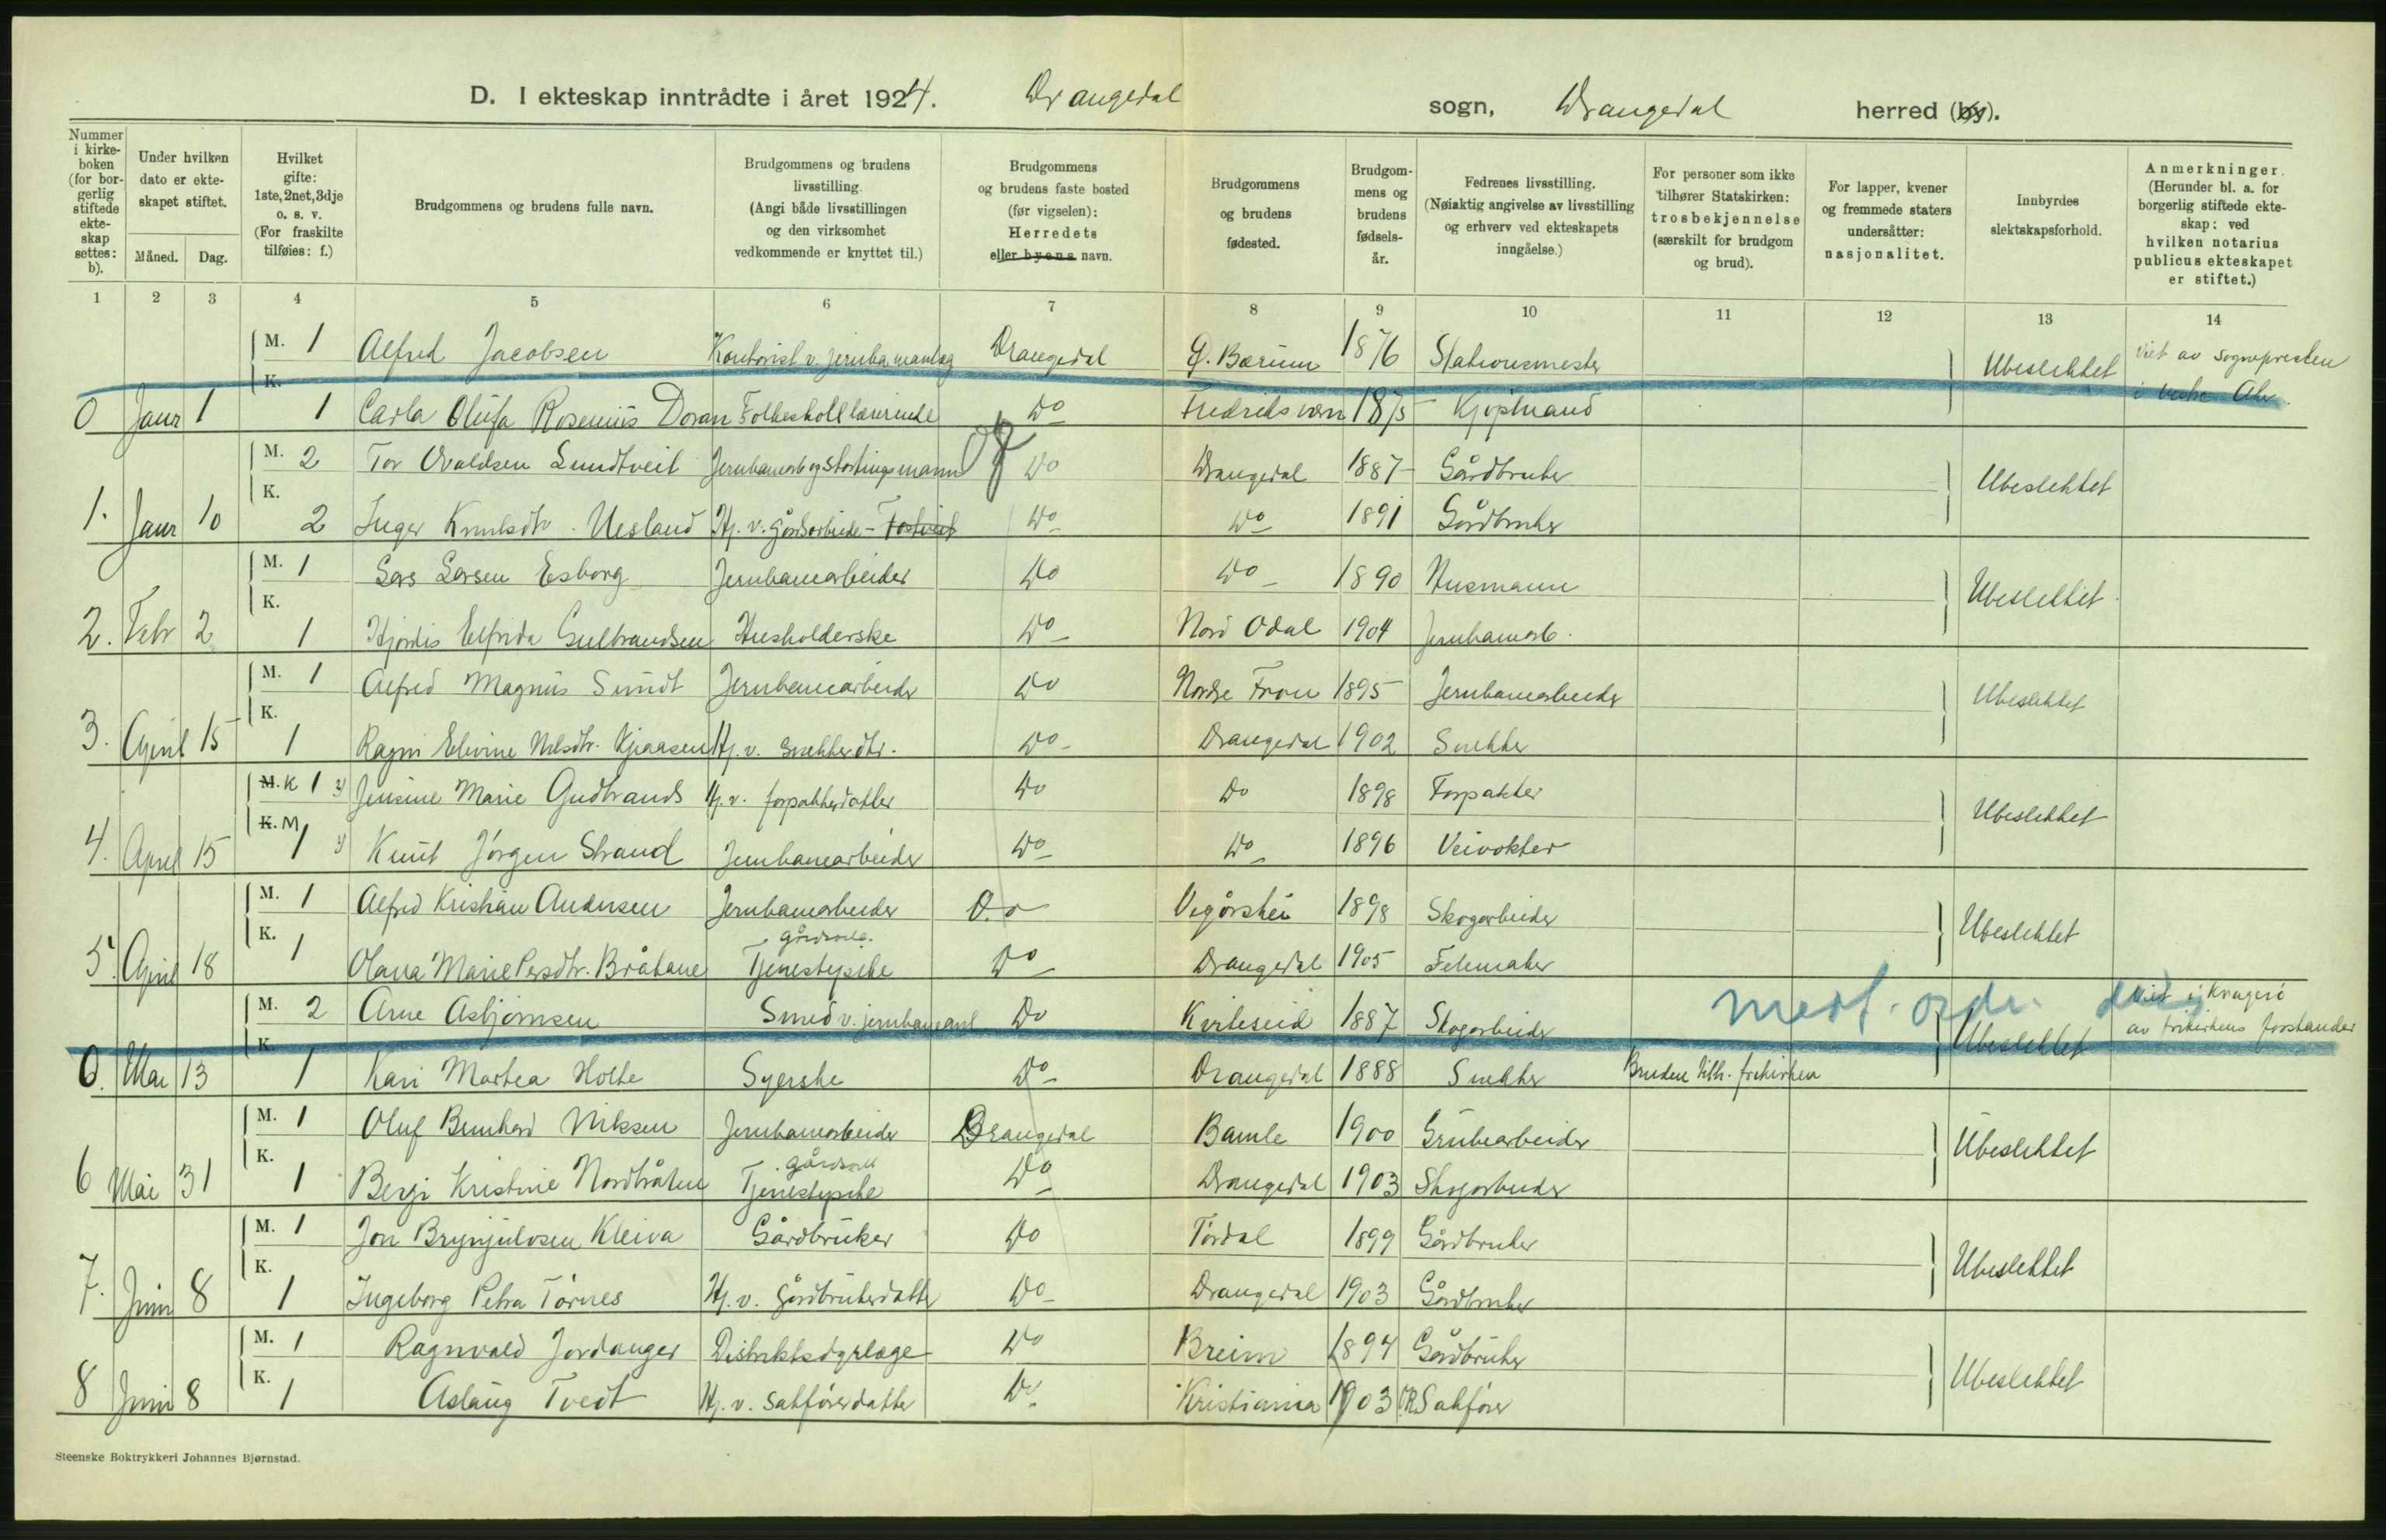 D. I ekteskap inntrådte i året 1924. Drangedal sogn, Drangedal herred (by).
Nummer i kirke-boken (for bor-gerlig stiftede ekte-skap settes: b).
Under hvilken dato er ekte-skapet stiftet.
Måned. Dag.
Hvilket gifte: 1ste, 2net, 3dje o. s. v. (For fraskilte tilføies: f.)
Brudgommens og brudens fulle navn.
Brudgommens og brudens livsstilling. (Angi både livsstillingen og den virksomhet vedkommende er knyttet til.)
Brudgommens og brudens faste bosted (før vigselen): Herredets eller byens navn.
Brudgommens og brudens fødested.
Brudgom-mens og brudens fødsels-år.
Fedrenes livsstilling. (Nøiaktig angivelse av livsstilling og erhverv ved ekteskapets inngåelse.)
For personer som ikke tilhører Statskirken: trosbekjennelse (særskilt for brudgom og brud).
For lapper, kvener og fremmede staters undersåtter: nasjonalitet.
Innbyrdes slektskapsforhold.
Anmerkninger. (Herunder bl. a. for borgerlig stiftede ekte-skap: ved hvilken notarius publicus ekteskapet er stiftet.)
1 2 3 4 5 6 7 8 9 10 11 12 13 14
M. 1 Alfred Jacobsen Kontorist v. jernbaneanlæg Drangedal Ø. Bærum 1876 Stationsmester Ubeslektet Viet av sognepresten
K.
0 Janr 1 1 Carla Olufa Rosenius Doran Folkeskolelærerinde Do Fredriksværn 1875 Kjøpmand i Vestre Aker.
M. 2 Tor Ovaldsen Lundtveit Jernbanearb. og stortingsmann Do Drangedal 1887 Gårdbruker Ubeslektet
K.
1. Janr 10 2 Inger Knutsdtr. Uesland Hj. v. gårdsarbeide Do Do 1891 Gårdbruker
M. 1 Lars Larsen Esborg Jernbanearbeider Do Do 1890 Husmann Ubeslektet
K.
2. Febr 2 1 Hjørdis Elfrida Gulbrandsen Husholderske Do Nord Odal 1904 Jernbanearb.
M. 1 Alfred Magnus Sundt Jernbanearbeider Do Nordre Fron 1895 Jernbanearbeider Ubeslektet
K.
3. April 15 1 Ragni Elevine Nilsdtr. Kjeaasen Hj. v. snekkerdtr. Do Drangedal 1902 Snekker
M. K 1 Jensine Marie Gudbrands Hj. v. forpakterdatter Do Do 1898 Forpakter Ubeslektet
K. M
4. April 15 1 Knut Jørgen Strand Jernbanearbeider Do Do 1896 Veivokter
M. 1 Alfred Kristian Andersen Jernbanearbeider Do Vegårshei 1898 Skogarbeider Ubeslektet
K. gårdsarb.
5. April 18 1 Olava Marie Persdtr. Bråtane Tjenestepike Do Drangedal 1905 Felemaker
M. 2 Arne Asbjørnsen Smed v. jernbaneanl Do Kviteseid 1887 Skogarbeider Ubeslektet Viet i Kragerø
K. av frikirkens forstander
0. Mai 13 1 Kari Martea Holte Syerske Do Drangedal 1888 Snekker Bruden tilh. frikirken
M. 1 Oluf Bernhard Nilsen Jernbanearbeider Drangedal Bamle 1900 Grubearbeider Ubeslektet
K. gårdsarb
6 Mai 31 1 Bergi Kristine Nordbråtene Tjenestepike Do Drangedal 1903 Skogarbeider
M. 1 Jon Brynjulvsen Kleiva Gårdbruker Do Tørdal 1899 Gårdbruker Ubeslektet
K.
7. Juni 8 1 Ingeborg Petra Tørnes Hj. v. gårdbrukerdatter Do Drangedal 1903 Gårdbruker
M. 1 Ragnvald Jordanger Distriktsdyrlæge Do Breim 1894 Gårdbruker Ubeslektet
K.
8 Juni 8 1 Aslaug Tvedt Hj. v. sakførerdatter Do Kristiania 1903 O.R.Sakfører
Steenske Boktrykkeri Johannes Bjørnstad.